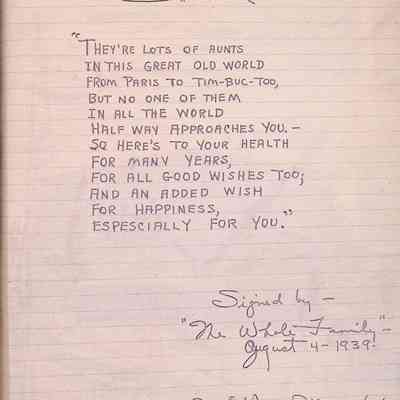 "THEY'RE LOTS OF AUNTS
IN THIS GREAT OLD WORLD
FROM PARIS TO TIM-BUC-TOO,
BUT NO ONE OF THEM
IN ALL THE WORLD
HALF WAY APPROACHES YOU. —
SO HERE'S TO YOUR HEALTH
FOR MANY YEARS,
FOR ALL GOOD WISHES TOO;
AND AN ADDED WISH
FOR HAPPINESS,
ESPESCIALLY FOR YOU."
Signed by —
"The Whole Family" —
August 4 - 1939.